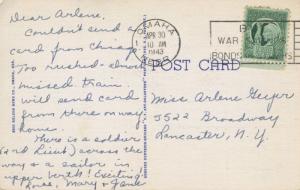 Dear Arlene,
Couldn't send a
card from Chicago
Too rushed - almost
missed train.
Will send card
from there on way
home.
There is a soldier
(2nd Lieut) across the
way & a sailor in
upper berth! Exciting!
Love, Mary & Jack
OMAHA
APR 30
10 AM
1943
NEBR.
WAR
BONDS
POST CARD
Miss Arlene Geyer
5522 Broadway
Lancaster, N.Y.